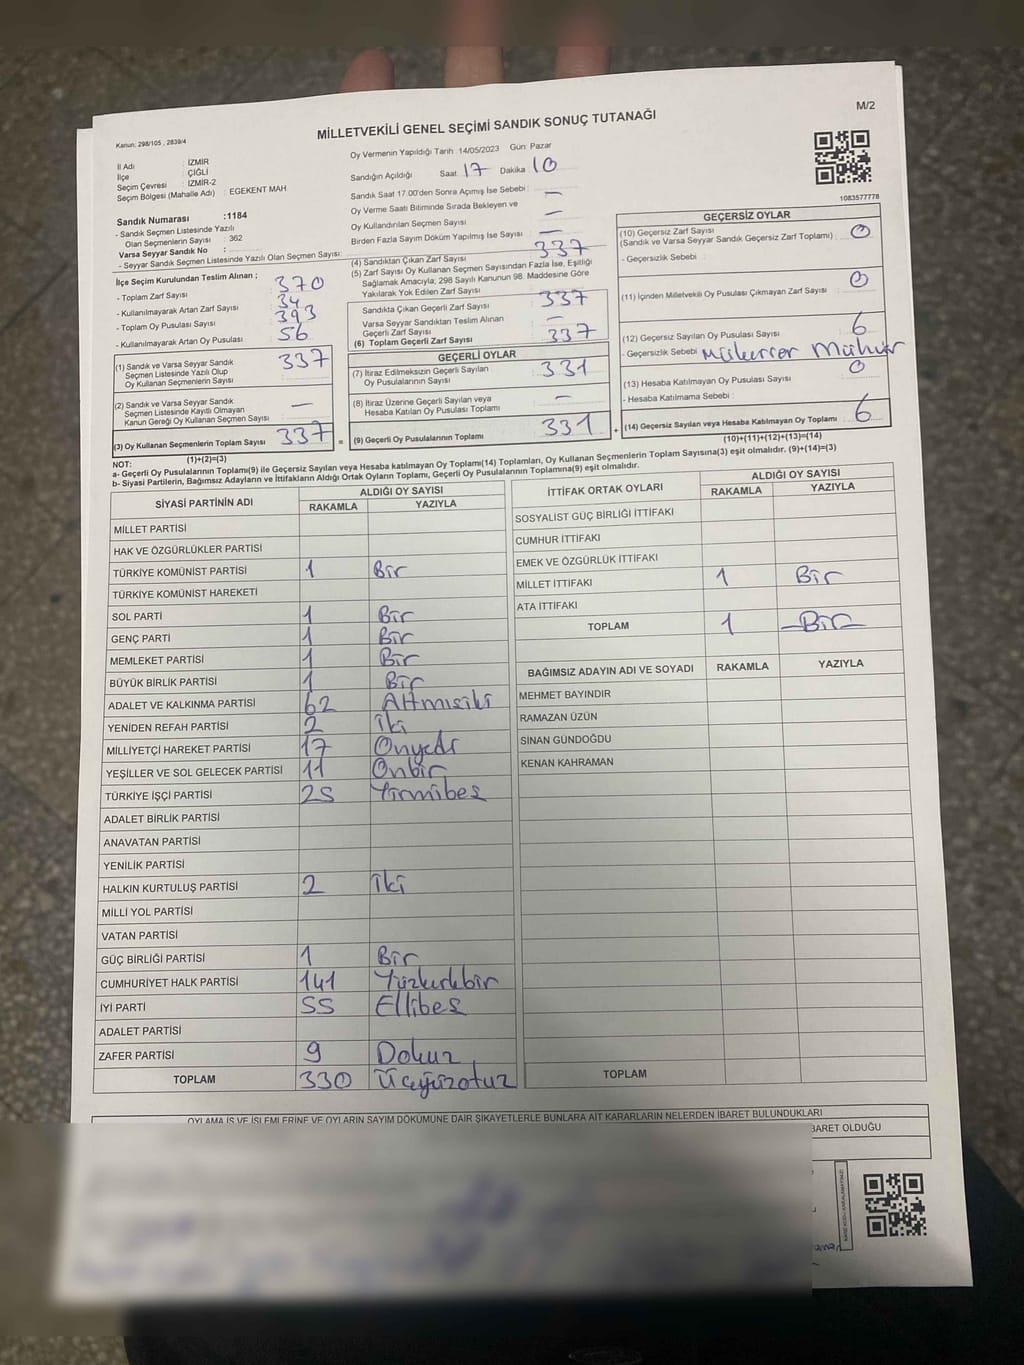 M/2
MİLLETVEKİLİ GENEL SEÇİMİ SANDIK SONUÇ TUTANAĞI
Kanun: 298/105 , 2839/4
İl Adı : İZMİR
İlçe : ÇİĞLİ
Seçim Çevresi : İZMİR-2
Seçim Bölgesi (Mahalle Adı) : EGEKENT MAH
Sandık Numarası :1184
- Sandık Seçmen Listesinde Yazılı
Olan Seçmenlerin Sayısı : 362
Varsa Seyyar Sandık No :
- Seyyar Sandık Seçmen Listesinde Yazılı Olan Seçmen Sayısı:
Oy Vermenin Yapıldığı Tarih :14/05/2023 Gün: Pazar
Sandığın Açıldığı Saat 17 Dakika 10
Sandık Saat 17.00'den Sonra Açımış İse Sebebi : —
Oy Verme Saati Bitiminde Sırada Bekleyen ve
Oy Kullandırılan Seçmen Sayısı : —
Birden Fazla Sayım Döküm Yapılmış İse Sayısı : —
1083577778
İlçe Seçim Kurulundan Teslim Alınan ;
- Toplam Zarf Sayısı : 370
- Kullanılmayarak Artan Zarf Sayısı : 34
- Toplam Oy Pusulası Sayısı : 393
- Kullanılmayarak Artan Oy Pusulası : 56
(1) Sandık ve Varsa Seyyar Sandık
Seçmen Listesinde Yazılı Olup
Oy Kullanan Seçmenlerin Sayısı : 337
(2) Sandık ve Varsa Seyyar Sandık
Seçmen Listesinde Kayıtlı Olmayan
Kanun Gereği Oy Kullanan Seçmen Sayısı : —
(3) Oy Kullanan Seçmenlerin Toplam Sayısı : 337
(1)+(2)=(3)
(4) Sandıktan Çıkan Zarf Sayısı : 337
(5) Zarf Sayısı Oy Kullanan Seçmen Sayısından Fazla İse, Eşitliği
Sağlamak Amacıyla; 298 Sayılı Kanunun 98. Maddesine Göre
Yakılarak Yok Edilen Zarf Sayısı :
Sandıkta Çıkan Geçerli Zarf Sayısı : 337
Varsa Seyyar Sandıktan Teslim Alınan
Geçerli Zarf Sayısı : —
(6) Toplam Geçerli Zarf Sayısı : 337
GEÇERLİ OYLAR
(7) İtiraz Edilmeksizin Geçerli Sayılan
Oy Pusulalarının Sayısı : 331
(8) İtiraz Üzerine Geçerli Sayılan veya
Hesaba Katılan Oy Pusulası Toplamı : —
= (9) Geçerli Oy Pusulalarının Toplamı : 331 +
GEÇERSİZ OYLAR
(10) Geçersiz Zarf Sayısı : 0
(Sandık ve Varsa Seyyar Sandık Geçersiz Zarf Toplamı)
- Geçersizlik Sebebi :
(11) İçinden Milletvekili Oy Pusulası Çıkmayan Zarf Sayısı : 0
(12) Geçersiz Sayılan Oy Pusulası Sayısı : 6
- Geçersizlik Sebebi : Mükerrer Mühür
(13) Hesaba Katılmayan Oy Pusulası Sayısı : 0
- Hesaba Katılmama Sebebi :
(14) Geçersiz Sayılan veya Hesaba Katılmayan Oy Toplamı : 6
(10)+(11)+(12)+(13)=(14)
NOT:
a- Geçerli Oy Pusulalarının Toplamı(9) ile Geçersiz Sayılan veya Hesaba katılmayan Oy Toplamı(14) Toplamları, Oy Kullanan Seçmenlerin Toplam Sayısına(3) eşit olmalıdır. (9)+(14)=(3)
b- Siyasi Partilerin, Bağımsız Adayların ve İttifakların Aldığı Ortak Oyların Toplamı, Geçerli Oy Pusulalarının Toplamına(9) eşit olmalıdır.
SİYASİ PARTİNİN ADI ALDIĞI OY SAYISI
RAKAMLA YAZIYLA
MİLLET PARTİSİ
HAK VE ÖZGÜRLÜKLER PARTİSİ
TÜRKİYE KOMÜNİST PARTİSİ 1 Bir
TÜRKİYE KOMÜNİST HAREKETİ
SOL PARTİ 1 Bir
GENÇ PARTİ 1 Bir
MEMLEKET PARTİSİ 1 Bir
BÜYÜK BİRLİK PARTİSİ 1 Bir
ADALET VE KALKINMA PARTİSİ 62 Altmısiki
YENİDEN REFAH PARTİSİ 2 İki
MİLLİYETÇİ HAREKET PARTİSİ 17 Onyedi
YEŞİLLER VE SOL GELECEK PARTİSİ 11 Onbir
TÜRKİYE İŞÇİ PARTİSİ 25 Yirmibeş
ADALET BİRLİK PARTİSİ
ANAVATAN PARTİSİ
YENİLİK PARTİSİ
HALKIN KURTULUŞ PARTİSİ 2 İki
MİLLİ YOL PARTİSİ
VATAN PARTİSİ
GÜÇ BİRLİĞİ PARTİSİ 1 Bir
CUMHURİYET HALK PARTİSİ 141 Yüzkırkbir
İYİ PARTİ 55 Ellibeş
ADALET PARTİSİ
ZAFER PARTİSİ 9 Dokuz
TOPLAM 330 Üçyüzotuz
İTTİFAK ORTAK OYLARI ALDIĞI OY SAYISI
RAKAMLA YAZIYLA
SOSYALİST GÜÇ BİRLİĞİ İTTİFAKI
CUMHUR İTTİFAKI
EMEK VE ÖZGÜRLÜK İTTİFAKI
MİLLET İTTİFAKI 1 Bir
ATA İTTİFAKI
TOPLAM 1 —Bir—
BAĞIMSIZ ADAYIN ADI VE SOYADI RAKAMLA YAZIYLA
MEHMET BAYINDIR
RAMAZAN ÜZÜN
SİNAN GÜNDOĞDU
KENAN KAHRAMAN
TOPLAM
OYLAMA İŞ VE İŞLEMLERİNE VE OYLARIN SAYIM DÖKÜMÜNE DAİR ŞİKAYETLERLE BUNLARA AİT KARARLARIN NELERDEN İBARET BULUNDUKLARI
BARET OLDUĞU